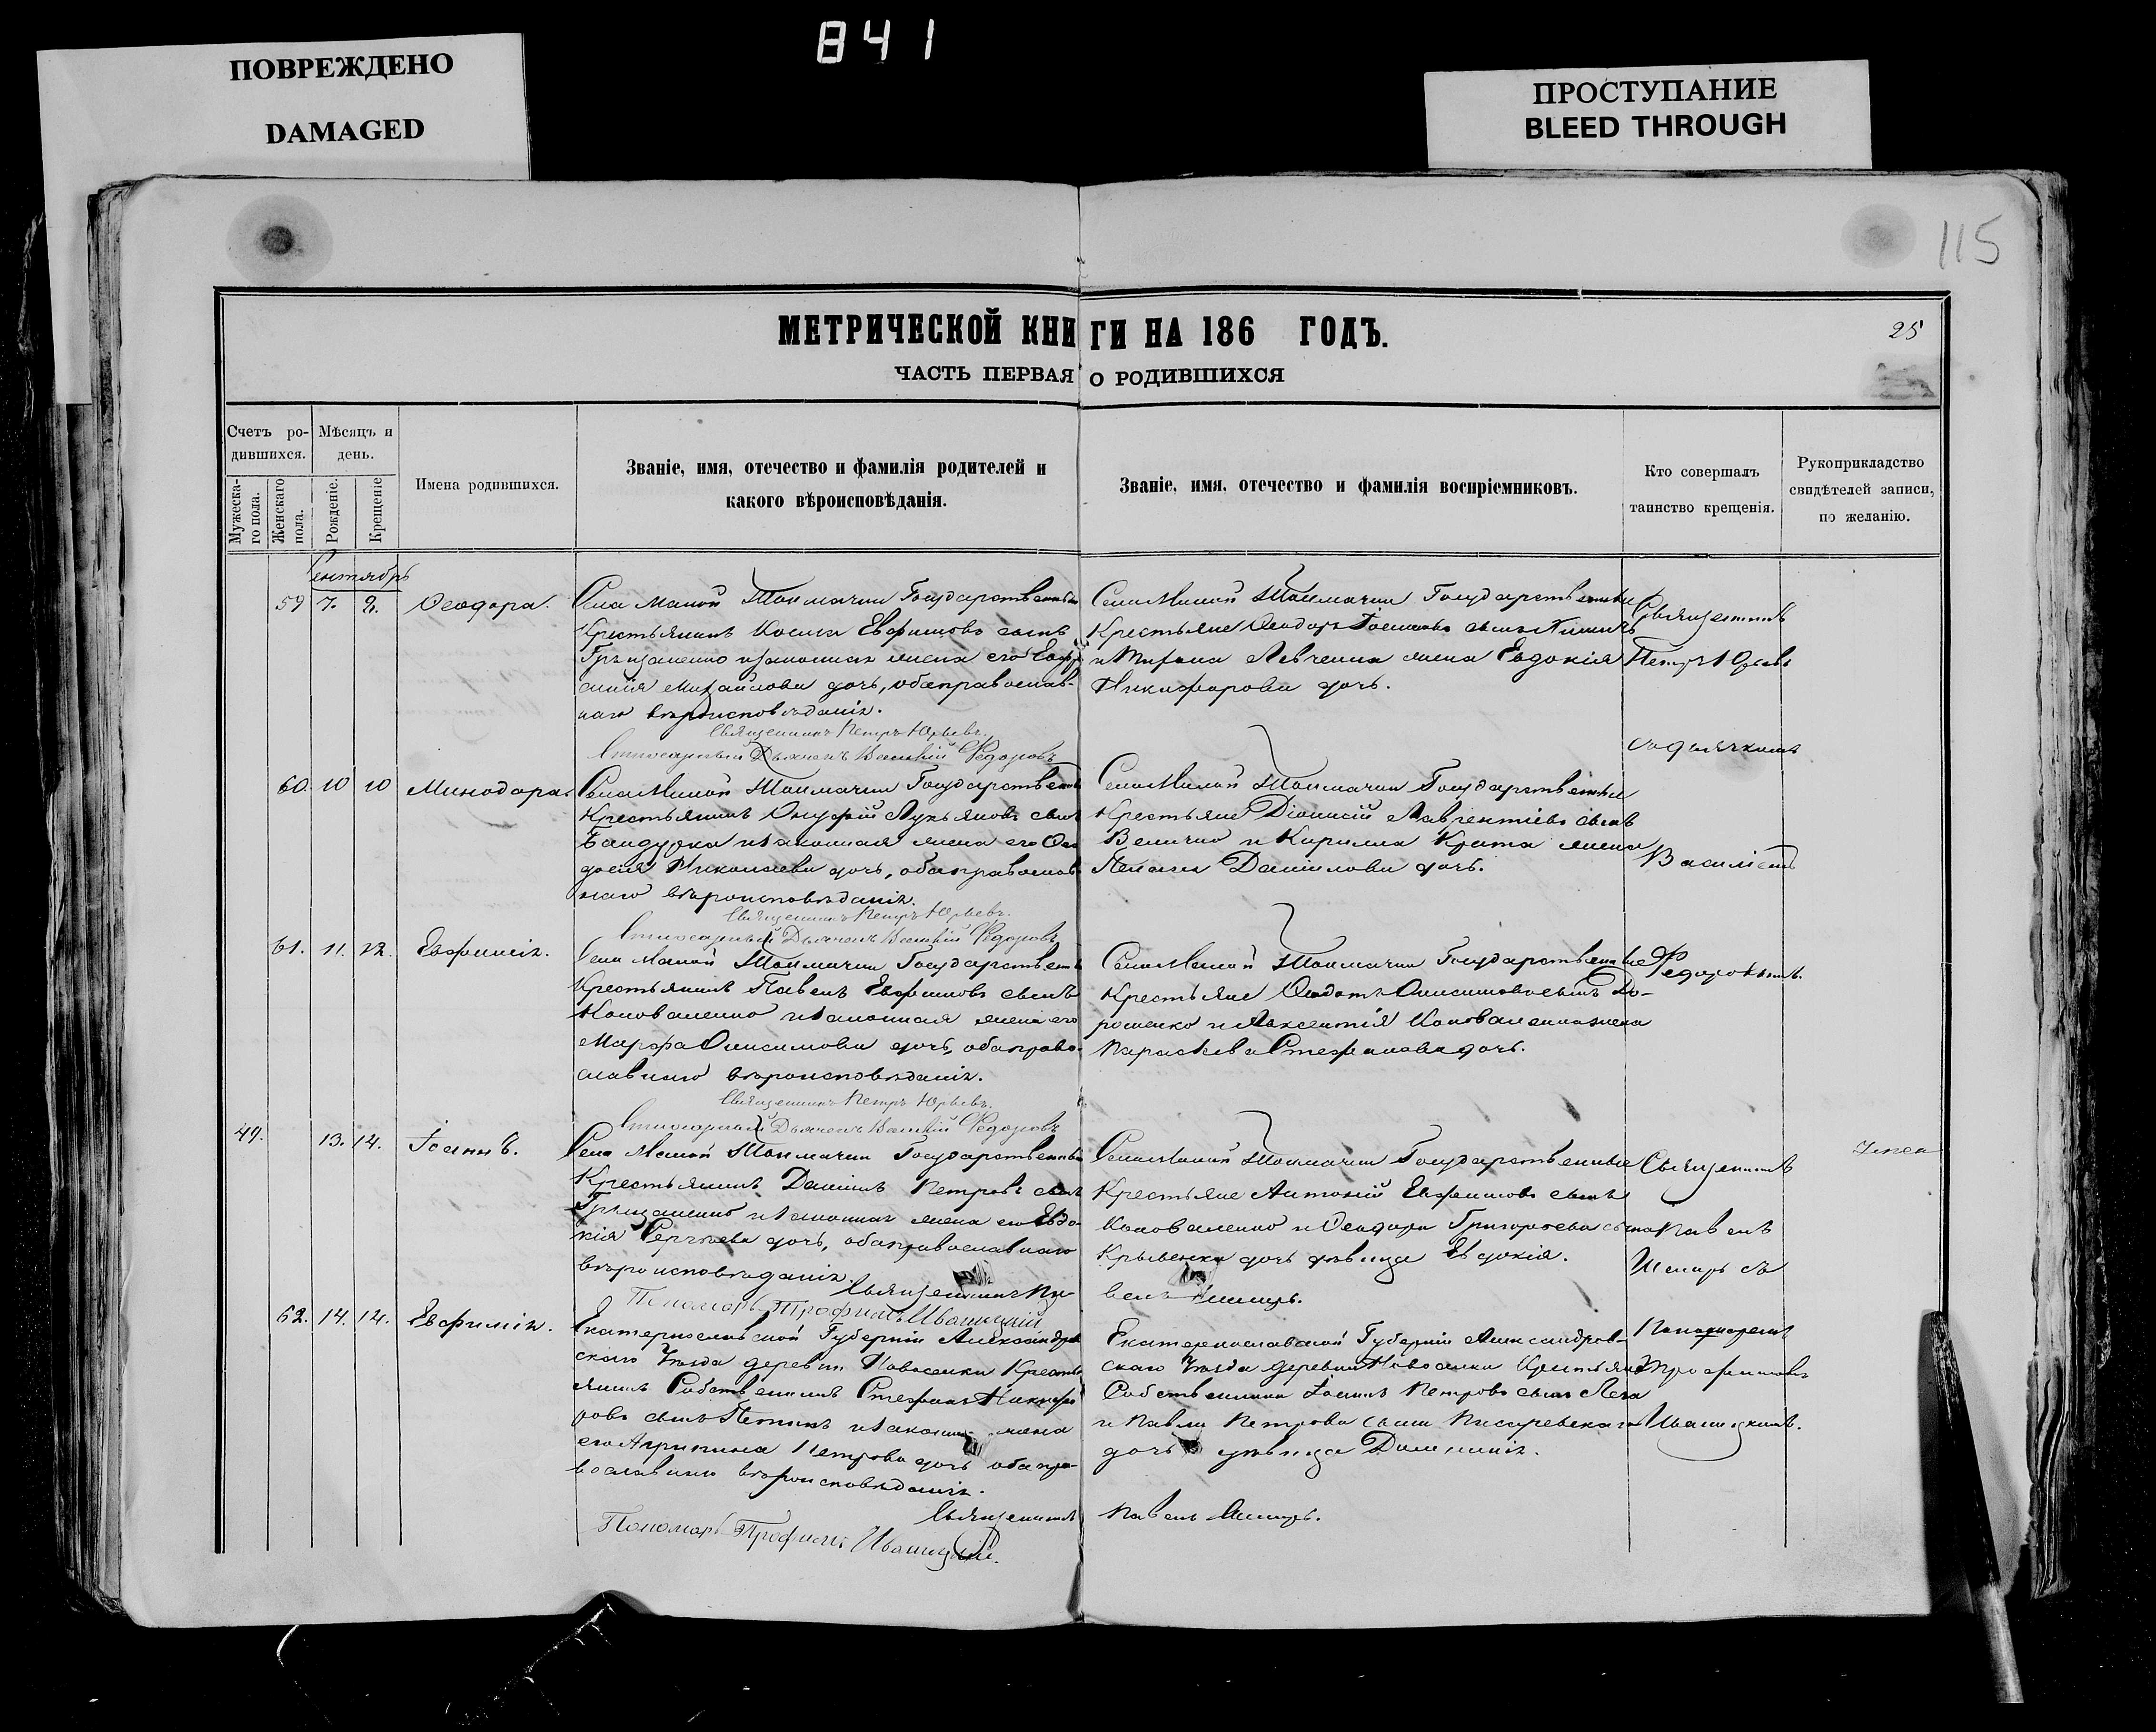 841
ПОВРЕЖДЕНО
DAMAGED
ПРОСТУПАНИЕ
BLEED THROUGH
115
МЕТРИЧЕСКОЙ КНИГИ НА 186 ГОДЪ.
25
ЧАСТЬ ПЕРВАЯ О РОДИВШИХСЯ
Счетъ ро-
дившихся.
Мужеска-
го пола.
Женскаго
пола.
Мѣсяцъ и
день.
Рожденіе.
Крещеніе
Имена родившихся.
Званіе, имя, отечество и фамилія родителей и
какого вѣроисповѣданія.
Званіе, имя, отечество и фамилія воспріемниковъ.
Кто совершалъ
таинство крещенія.
Рукоприкладство
свидѣтелей записи,
по желанію.
Сентябрь
59 7. 8. Ѳеодора.
Села Малой Токмачки Государственный
Крестьянинъ Косма Евфимовъ сынъ
Грищаненко и законная жена его Евфи
мія Михайлова дочь, оба православ-
наго вѣроисповѣданія.
Священникъ Петръ Юрьевъ.
Дьячекъ Василій Ѳедоровъ
Села Малой Токмачки Государственные
Крестьяне Ѳеодоръ сынъ
и жена Евдокія
Никифорова дочь.
Священникъ
Петръ Юрьевъ
съ дьячкомъ
60. 10 10 Минодора.
Села Малой Токмачки Государственный
Крестьянинъ Онуфрій Лукьяновъ сынъ
Бандурка и законная жена его Ѳео
досія Николаева дочь, оба православ
наго вѣроисповѣданія.
Священникъ Петръ Юрьевъ.
Дьячекъ Василій Ѳедоровъ
Села Малой Токмачки Государственные
Крестьяне Діонисій Лаврентіевъ сынъ
Величко и Кирилла Крата жена
Пелагія Даніилова дочь.
Василіемъ
61. 11. 12. Евфимія.
Села Малой Токмачки Государственный
Крестьянинъ Павелъ Евфимовъ сынъ
Коноваленко и законная жена его
Марфа Онисимова дочь, оба право-
славнаго вѣроисповѣданія.
Священникъ Петръ Юрьевъ.
Дьячекъ Василій Ѳедоровъ
Села Малой Токмачки Государственные
Крестьяне Ѳеодотъ Онисимовъ сынъ До-
рошенко и Авксентія Коноваленка жена
Параскева Стефанова дочь.
Ѳедоровымъ.
49. 13. 14. Іоаннъ.
Села Малой Токмачки Государственный
Крестьянинъ Даніилъ Петровъ сынъ
Грищаненко и законная жена его Евдо-
кія Сергѣева дочь, оба православнаго
вѣроисповѣданія.
Священникъ Па-
велъ
Пономарь Трофимъ Иваницкій
Села Малой Токмачки Государственные
Крестьяне Антоній Евфимовъ сынъ
Коноваленко и Ѳеодора Григорьева сына
дочь дѣвица Евдокія.
Священникъ
Павелъ
съ
62. 14. 14. Евфимія.
Екатеринославской Губерніи Александров
скаго Уѣзда деревни Новоселки Кресть
янинъ Собственникъ Стефанъ Никифо
ровъ сынъ и законная жена
его Агрипина Петрова дочь оба пра-
вославнаго вѣроисповѣданія.
Священникъ Павелъ
Пономарь Трофимъ Иваницкій.
Екатеринославской Губерніи Александров-
скаго Уѣзда деревни Новоселки Крестьяне
Собственники Іоаннъ Петровъ сынъ
и Павла Петрова сына
дочь дѣвица Домникія.
Пономаремъ
Трофимомъ
Иваницкимъ.